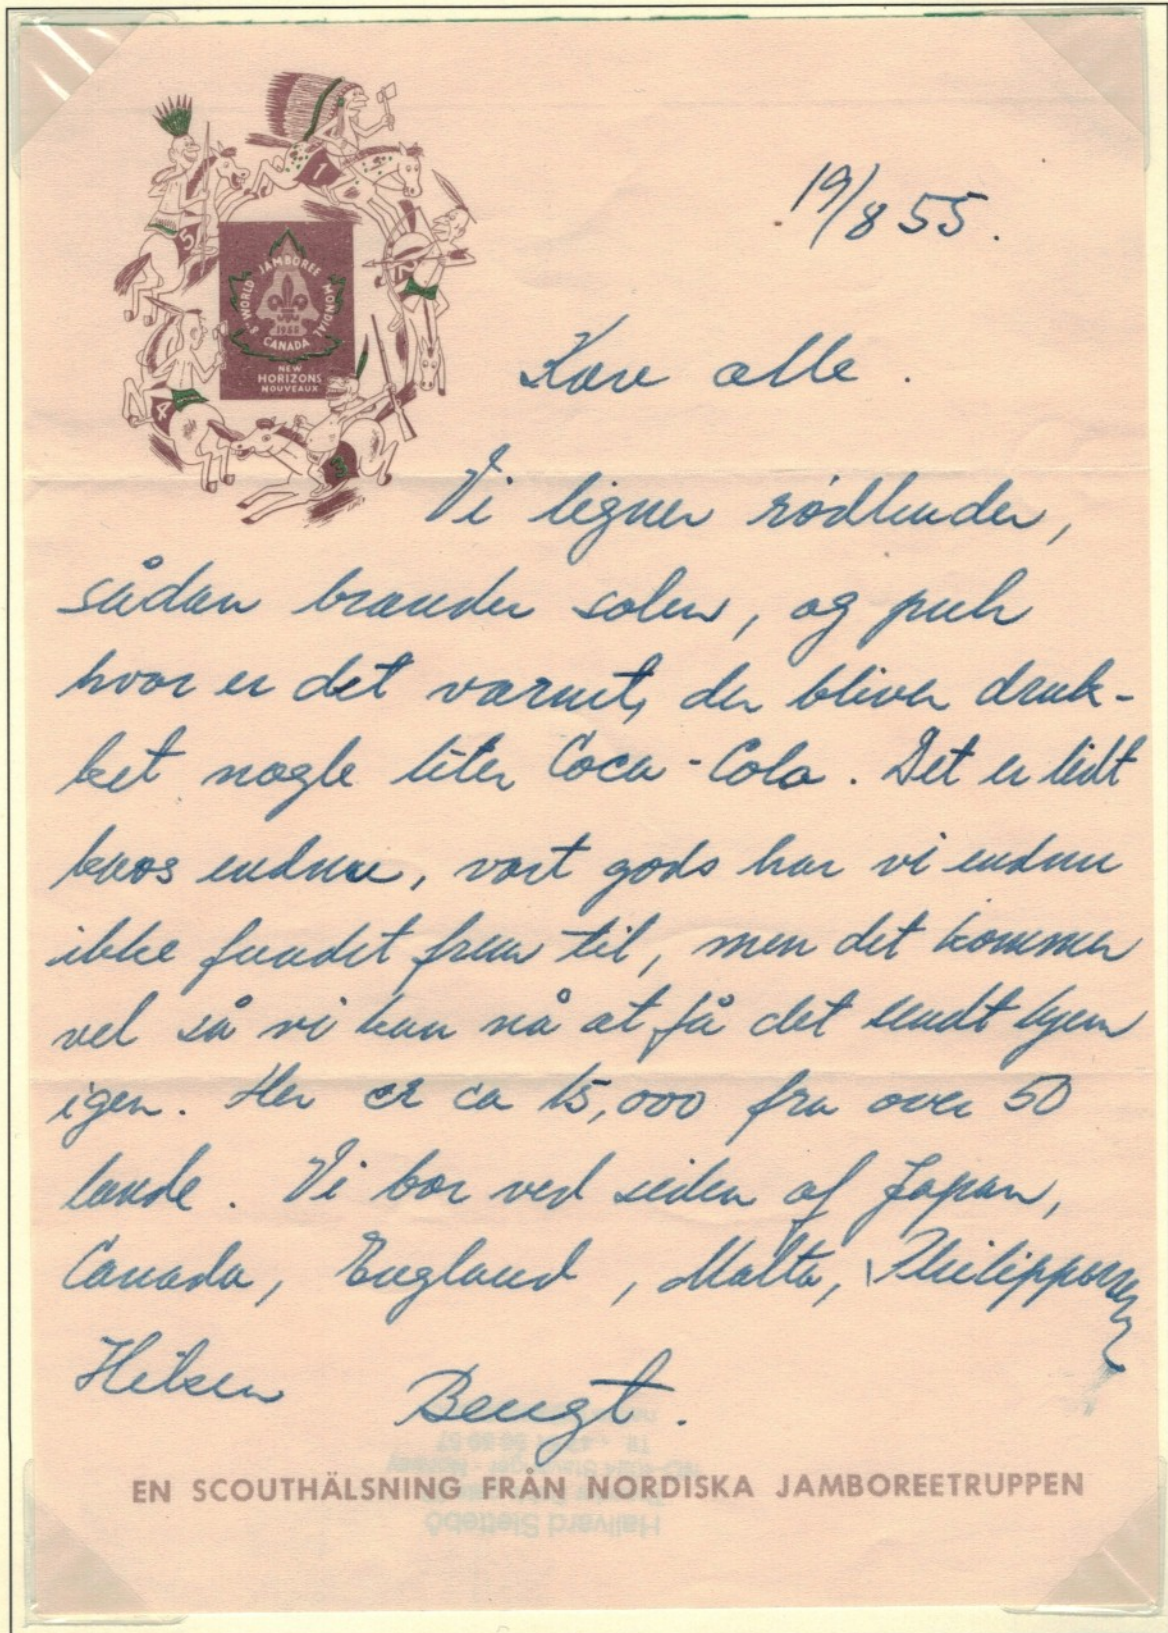 1
5
2
4
3
8TH WORLD JAMBOREE MONDIAL
1955
CANADA
NEW
HORIZONS
NOUVEAUX
19/8 55.
Kære alle.
Vi ligner rødhuder,
sådan brænder solen, og puh
hvor er det varmt, der bliver druk-
ket nogle liter Coca-Cola. Det er lidt
kaos endnu, vort gods har vi endnu
ikke fundet frem til, men det kommer
vel så vi kan nå at få det sendt hjem
igen. Her er ca 15,000 fra over 50
lande. Vi bor ved siden af Japan,
Canada, England, Malta, Philippinern
Hilsen Bengt.
EN SCOUTHÄLSNING FRÅN NORDISKA JAMBOREETRUPPEN
Hallvard Slettebö